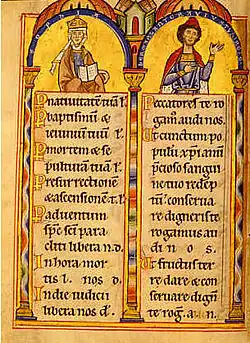 P nativitatē tuā l'.
P baptismū &
ieiuniū tuū l'.
P mortem & se
pulturā tuā l'.
P resurrectionē
& ascensionē t. l.
P adventum
sp̄c sc̄i para
cliti libera n.d.
In hora mor
tis l. nos d
In die iudicii
libera nos dn̄.
Peccatores te ro
gam' audi nos.
Ut cunctum po
pulū xp̄ianū
p̄cioso sangui
ne tuo redep
tū conserva
re digneris te
rogamus au
di nos.
Ut fructus ter
re dare & con
servare dign̄
te rog. a. n.